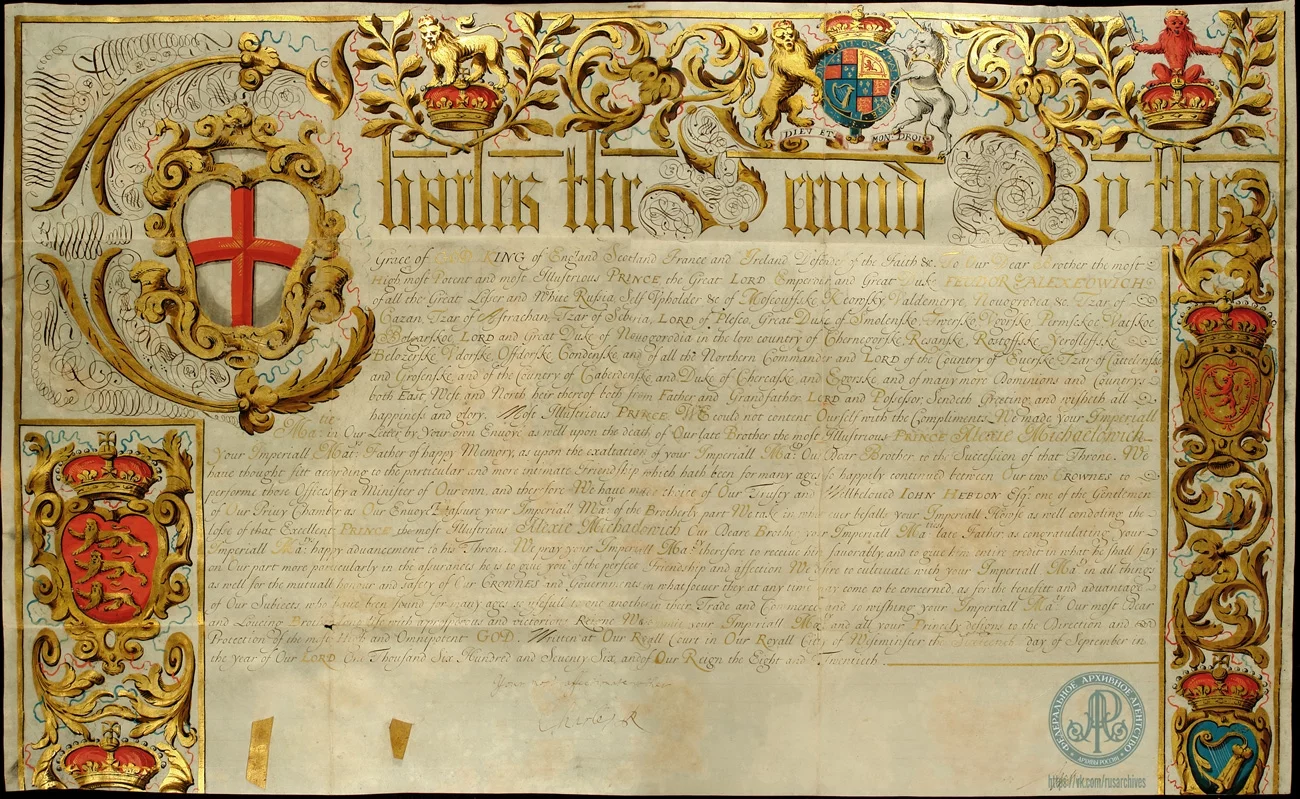 DIEV ET MON DROIT
Charles the Second By the
Grace of GOD KING of England Scotland France and Ireland Defender of the Faith &c. To Our Dear Brother the most
High most Potent and most Illustrious PRINCE the Great LORD Emperour and Great Duke FEODOR ALEXEOWICH
of all the Great Lesser and White Russia, Self Vpholder &c of Moscouffske Keowsky Valdemerye, Nouogrodea &c Tzar of
Cazan, Tzar of Astrachan, Tzar of Siberia, LORD of Plesco, Great Duke of Smolensko, Twersko
LORD and Great Duke of Nouogorodia in the low country of Chernegorske, Rosanske, Rostoffske, Yeroslifsske,
Belozerske Vdorske, Offdorske, Condenske, and of all the Northern Commander and LORD of the Country of Euerske, Tzar of
and Grosenske, and of the Country of Caberdenske, and Duke of Chercaske, and Egorske and of many more Dominions and Countrys
both East West and North heir thereof both from Father and Grandfather LORD and Possesor Sendeth Greeting, and wisheth all
happiness and glory. Most Illustrious PRINCE, WE could not content Ourself with the Compliments We made your Imperiall
Matie in Our Letter by Your own Enuoye as well upon the death of Our late Brother the most Illustrious PRINCE Alexie Michaelowich
Your Imperiall Mats Father of happy Memory, as upon the exaltation of your Imperiall Maty Our Dear Brother to the Succession of that Throne. We
haue thought fitt according to the particular and more intimate Friendship which hath been for many ages so happely continued between Our two CROWNES to
performe those Offices by a Minister of Our own, and therefore We haue made choice of Our Trusty and Wellbeloued IOHN HEBDON Esqr. one of the Gentlemen
of Our Priuy Chamber as Our Enuoye to assure your Imperiall Maty of the Brotherly part We take in whatsoeuer befalls your Imperiall House as well condoling the
losse of that Excellent PRINCE the most Illustrious Alexie Michaelowich Our Deare Brother your Imperiall Mats late Father as congratulating your
Imperiall Mats happy aduancement to his Throne. We pray your Imperiall Maty therefore to receiue him fauorably, and to giue him entire credit in what he shall say
on Our part more particularly in the assurances he is to giue you of the perfect Friendship and affection We desire to cultiuate with your Imperiall Maty in all things
as well for the mutuall honour and safety of Our CROWNES and Gouernments in whatsoeuer they at any time may come to be concerned, as for the benefitt and aduantage
of Our Subiects who haue been found for many ages so usefull to one another in their Trade and Commerce, and so wishing your Imperiall Maty Our most Dear
and Loueing Brother long life with a prosperous and victorious Reigne We your Imperiall Maty and all your Princely designs to the Direction and
Protection of the most High and Omnipotent GOD. Written at Our Royall Court in Our Royall City of Westminster the day of September in
the year of Our LORD One Thousand Six Hundred and Seuenty Six, and of Our Reign the Eight and Twentieth
Your most affectionate
Charles R
ФЕДЕРАЛЬНОЕ АРХИВНОЕ АГЕНТСТВО
АРХИВЫ РОССИИ
https://vk.com/rusarchives